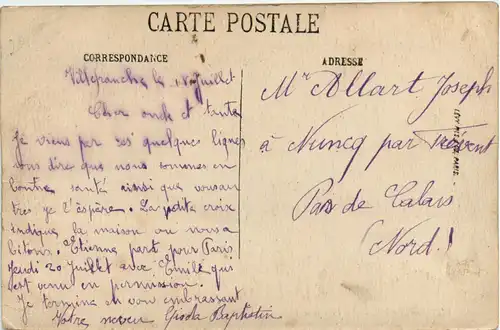 CARTE POSTALE
CORRESPONDANCE
ADRESSE
Villefranche le juillet
Cher oncle et tante
Je viens par ses quelques lignes
vous dire que nous sommes en
bonne santé ainsi que vousau
tres je l'éspère. La petite croix
indique la maison ou nous a
bitons. Etienne part pour Paris
Jeudi 20 Juillet avec Emile qui
est venu en permission.
Je termine en vous embrassant
Votre neveu Baptistin
Mr Allart Joseph
à Nuncq par Frévent
Pas de Calais
(Nord)